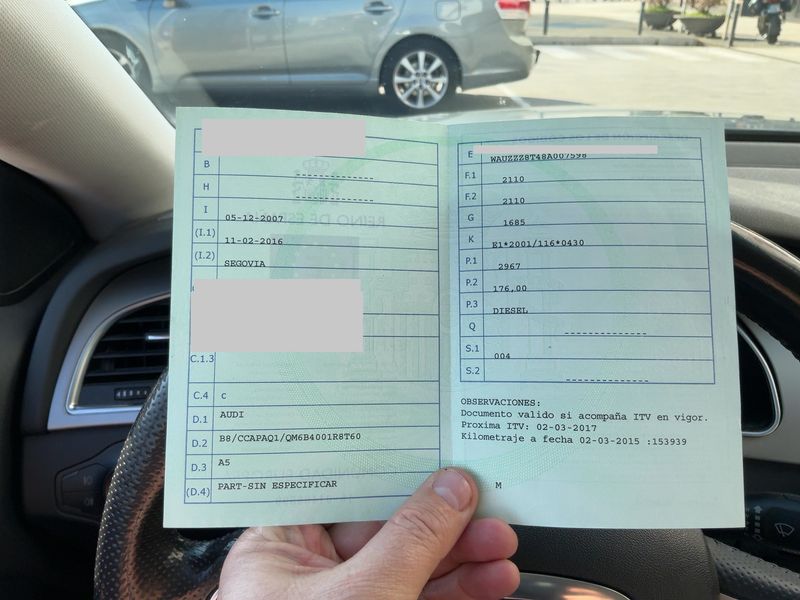 B
H
I 05-12-2007
(I.1) 11-02-2016
(I.2) SEGOVIA
C.1.3
C.4 c
D.1 AUDI
D.2 B8/CCAPAQ1/QM6B4001R8T60
D.3 A5
(D.4) PART-SIN ESPECIFICAR
E WAUZZZ8T48A007598
F.1 2110
F.2 2110
G 1685
K E1*2001/116*0430
P.1 2967
P.2 176,00
P.3 DIESEL
Q
S.1 004
S.2
OBSERVACIONES:
Documento valido si acompaña ITV en vigor.
Proxima ITV: 02-03-2017
Kilometraje a fecha 02-03-2015 :153939
M